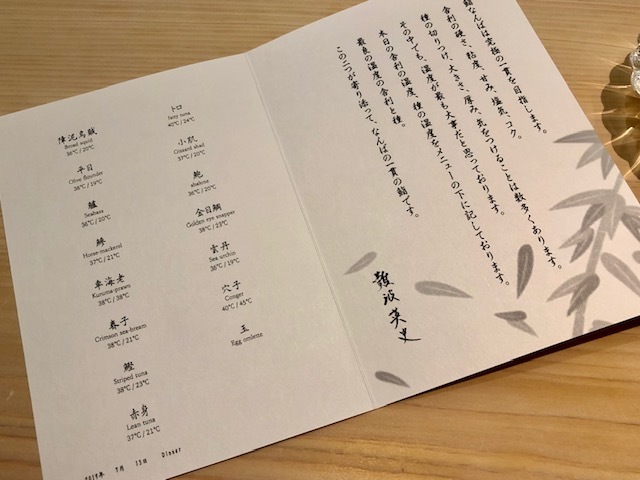 障泥烏賊
Broad squid
36℃ / 20℃
平目
Olive flounder
38℃ / 19℃
鱸
Seabass
36℃ / 20℃
鯵
Horse-mackerol
37℃ / 21℃
車海老
Kuruma-prawn
38℃ / 38℃
春子
Crimson sea-bream
38℃ / 21℃
鰹
Striped tuna
38℃ / 23℃
赤身
Lean tuna
37℃ / 21℃
トロ
fatty tuna
40℃ / 24℃
小肌
Gizzard shad
37℃ / 20℃
鮑
abalone
36℃ / 20℃
金目鯛
Golden eye snapper
38℃ / 23℃
雲丹
Sea urchin
36℃ / 19℃
穴子
Conger
40℃ / 45℃
玉
Egg omlette
2019年 7月 15日 Dinner
鮨なんばは究極の一貫を目指します。
舎利の硬さ、粘度、甘み、塩気、コク。
種の切りつけ、大きさ、厚み、気をつけることは数多くあります。
その中でも、温度が最も大事だと思っております。
本日の舎利の温度、種の温度をメニューの下に記しております。
最良の温度の舎利と種。
この二つが寄り添って、なんばの一貫の鮨です。
難波英史